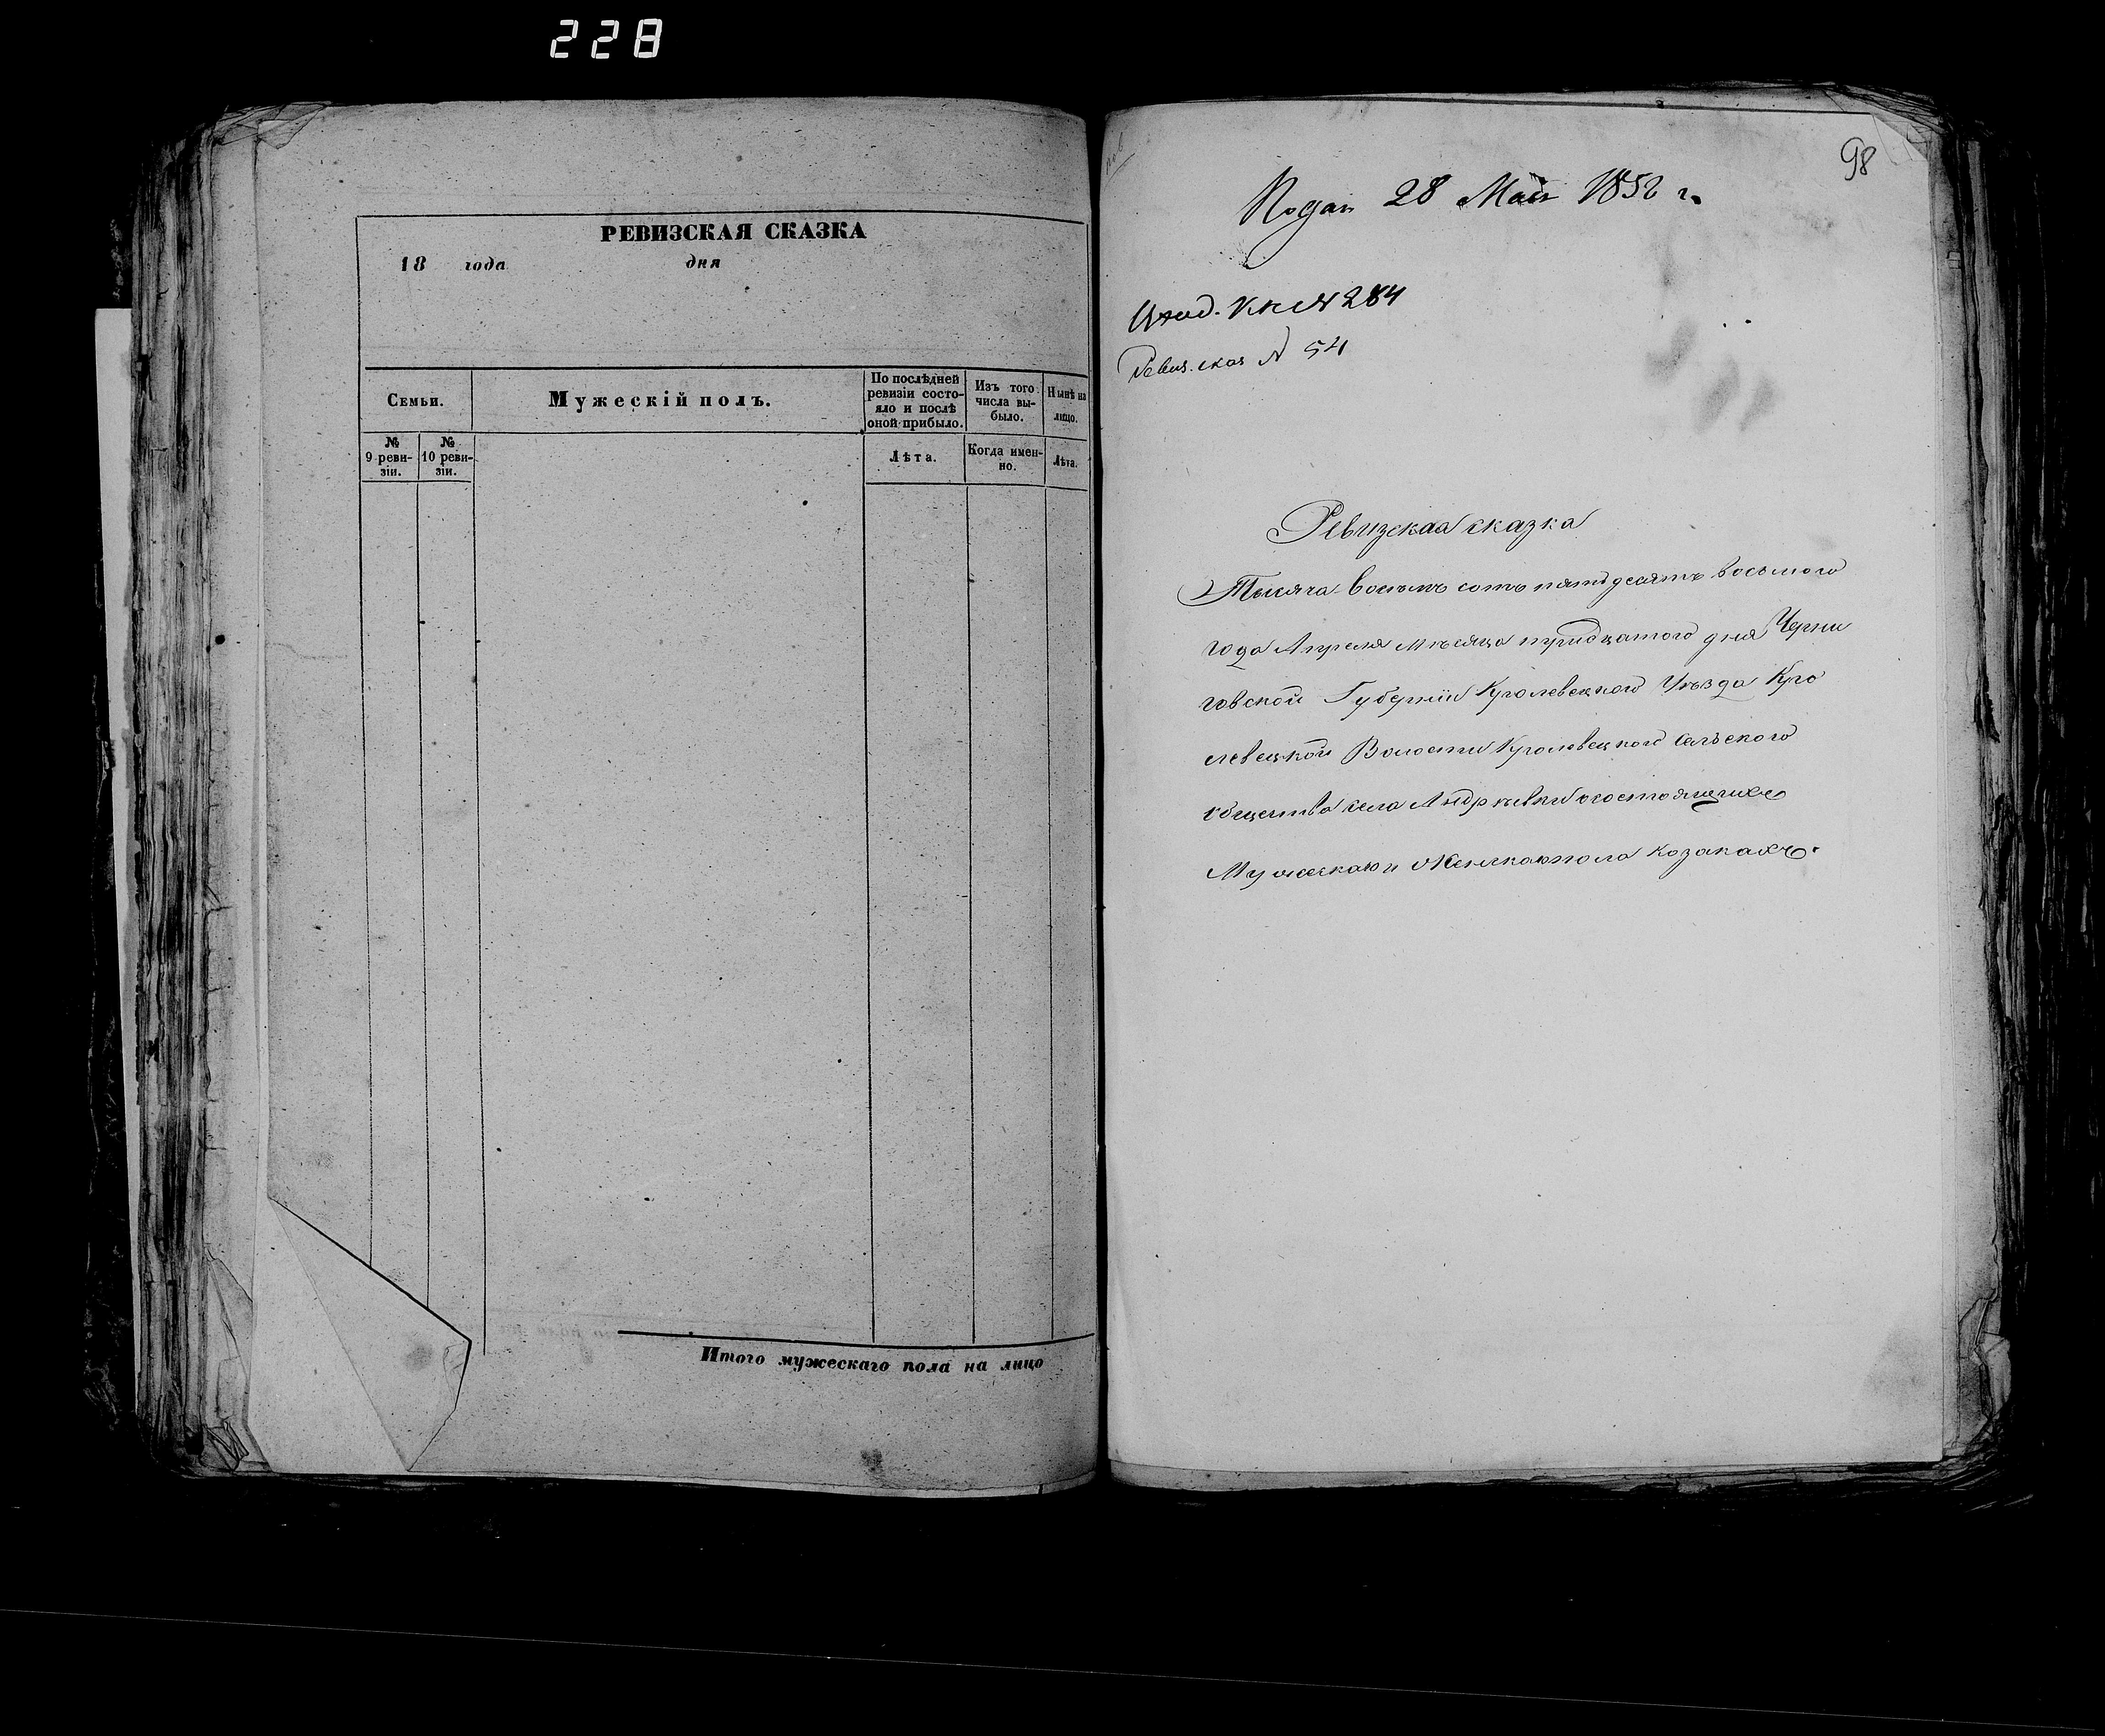 228
РЕВИЗСКАЯ СКАЗКА
18 года дня
Семьи.
Мужескій полъ.
По послѣдней ревизіи состо-
яло и послѣ оной прибыло.
Изъ того числа вы-
было.
Нынѣ на лицо.
№ 9 реви-
зіи.
№ 10 реви-
зіи.
Лѣта.
Когда имен-
но.
Лѣта.
Итого мужескаго пола на лицо
98
Подан 28 Мая 1858 г.
Вход. Кн № 284
Ревиз. сказ № 54
Ревизская сказка
Тысяча восемь сотъ пятьдесятъ восьмого
года Апреля мѣсяца тридцатого дня Черни
говской Губерніи Кролевецкого Уѣзда Кро
левецкой Волости Кролевецкого Сельского
общества села Андрѣевки о состоящихъ
Мужеска и Женска пола козакахъ.